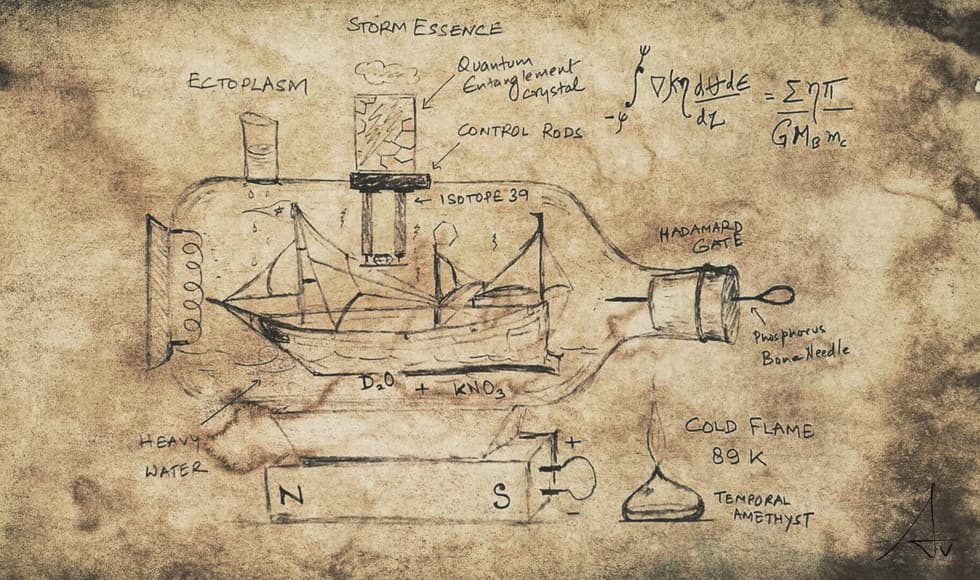 STORM ESSENCE
ECTOPLASM
Quantum
Entanglement
Crystal
CONTROL RODS
ISOTOPE 39
HADAMARD
GATE
Phosphorus
Bone Needle
D₂O + KNO₃
HEAVY
WATER
+
N S
-
COLD FLAME
89 K
TEMPORAL
AMETHYST